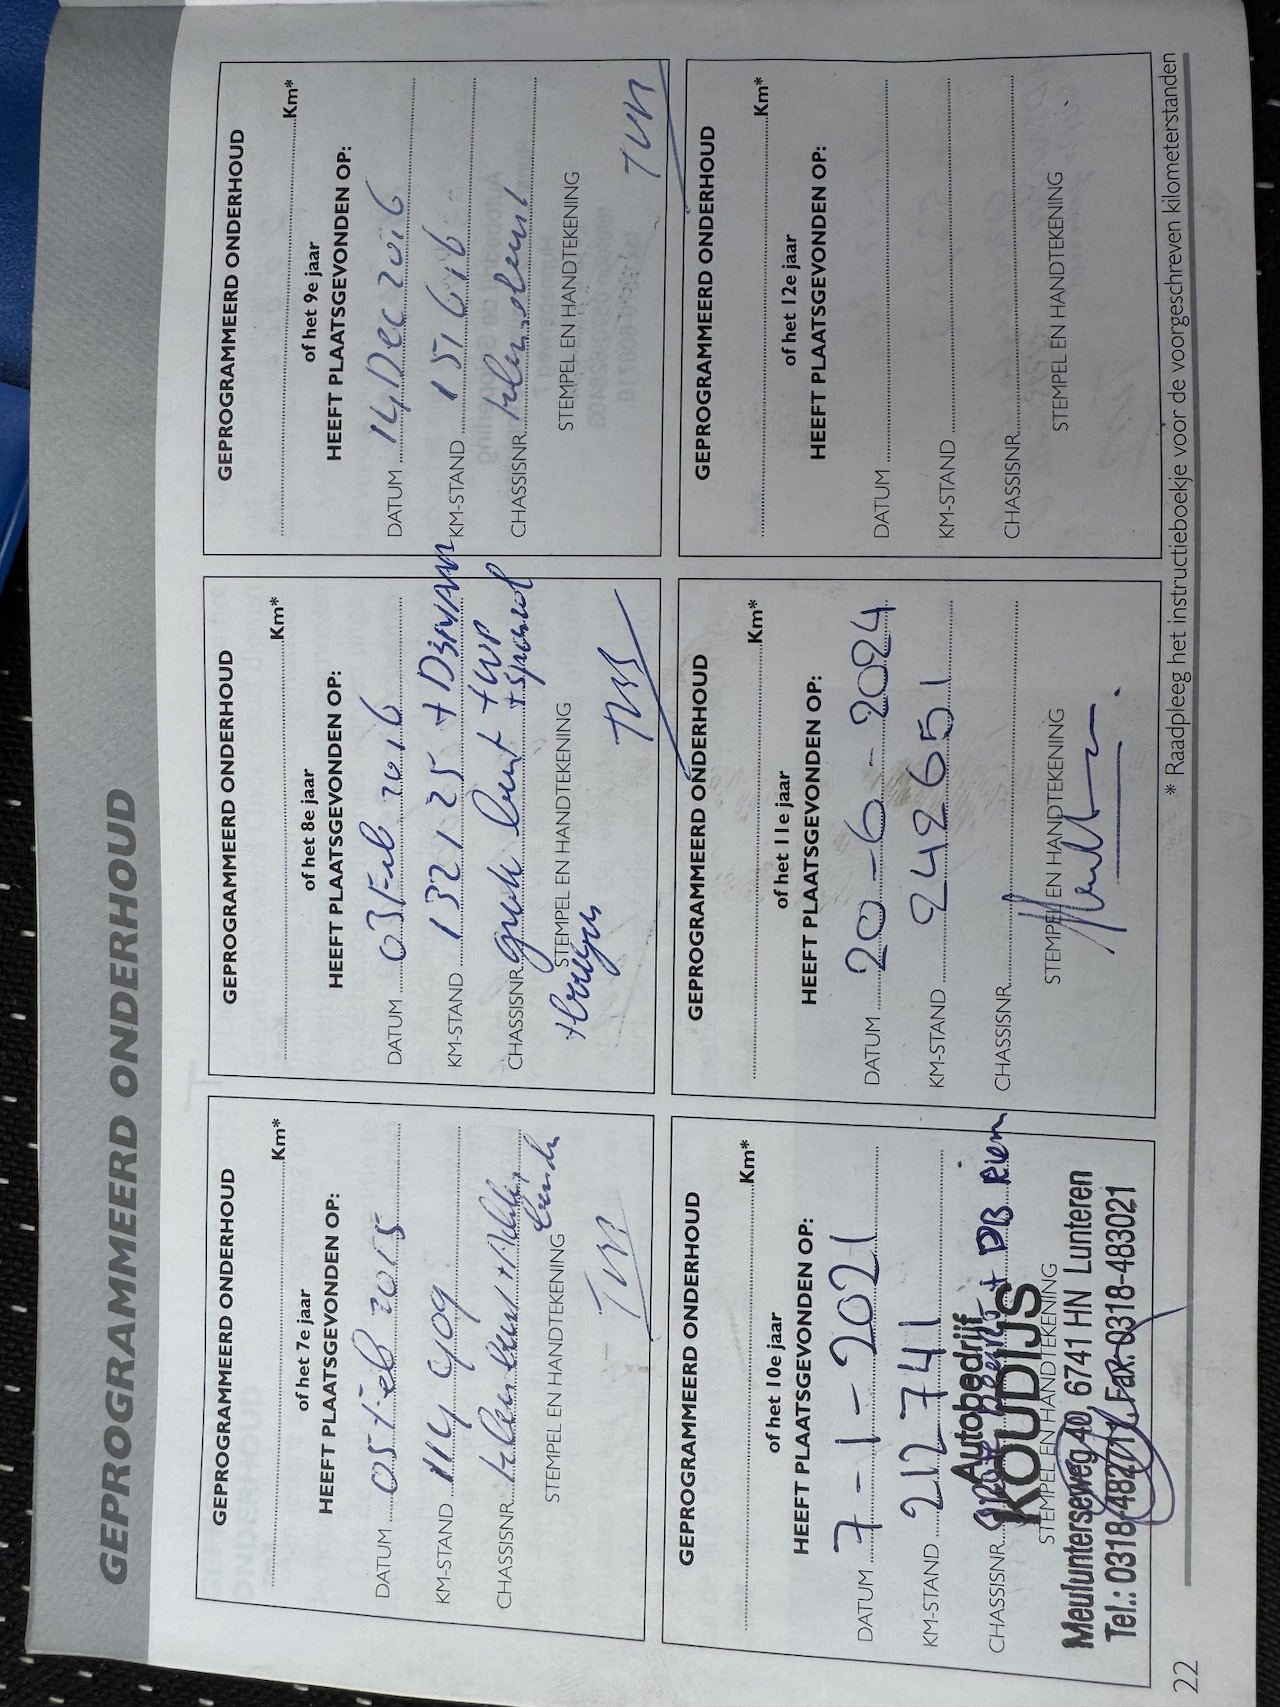 GEPROGRAMMEERD ONDERHOUD
GEPROGRAMMEERD ONDERHOUD
Km*
of het 7e jaar
HEEFT PLAATSGEVONDEN OP:
DATUM 05 Feb 2015
KM-STAND 114 909
CHASSISNR. klein beurt +
STEMPEL EN HANDTEKENING
GEPROGRAMMEERD ONDERHOUD
Km*
of het 8e jaar
HEEFT PLAATSGEVONDEN OP:
DATUM 03 Feb 2016
KM-STAND 132125 +
CHASSISNR. beurt +
STEMPEL EN HANDTEKENING
GEPROGRAMMEERD ONDERHOUD
Km*
of het 9e jaar
HEEFT PLAATSGEVONDEN OP:
DATUM 14 Dec 2016
KM-STAND 151616
CHASSISNR.
STEMPEL EN HANDTEKENING
GEPROGRAMMEERD ONDERHOUD
Km*
of het 10e jaar
HEEFT PLAATSGEVONDEN OP:
DATUM 7-1-2021
KM-STAND 212741
CHASSISNR. + DB Riem
Autobedrijf
KOUDIJS
STEMPEL EN HANDTEKENING
Meulunterseweg 40, 6741 HN Lunteren
Tel.: 0318-482711, Fax: 0318-483021
GEPROGRAMMEERD ONDERHOUD
Km*
of het 11e jaar
HEEFT PLAATSGEVONDEN OP:
DATUM 20-6-2024
KM-STAND 242651
CHASSISNR.
STEMPEL EN HANDTEKENING
GEPROGRAMMEERD ONDERHOUD
Km*
of het 12e jaar
HEEFT PLAATSGEVONDEN OP:
DATUM
KM-STAND
CHASSISNR.
STEMPEL EN HANDTEKENING
* Raadpleeg het instructieboekje voor de voorgeschreven kilometerstanden
22